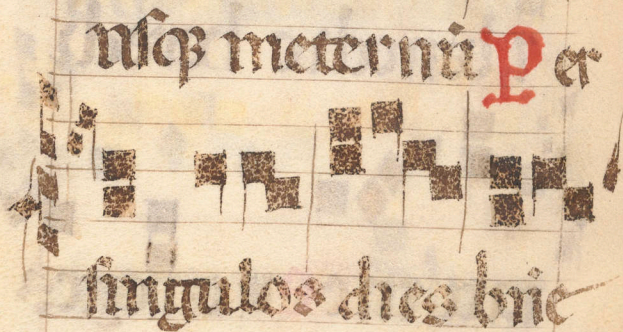 usqꝫ in eternū Per
singulos dies bn̄e